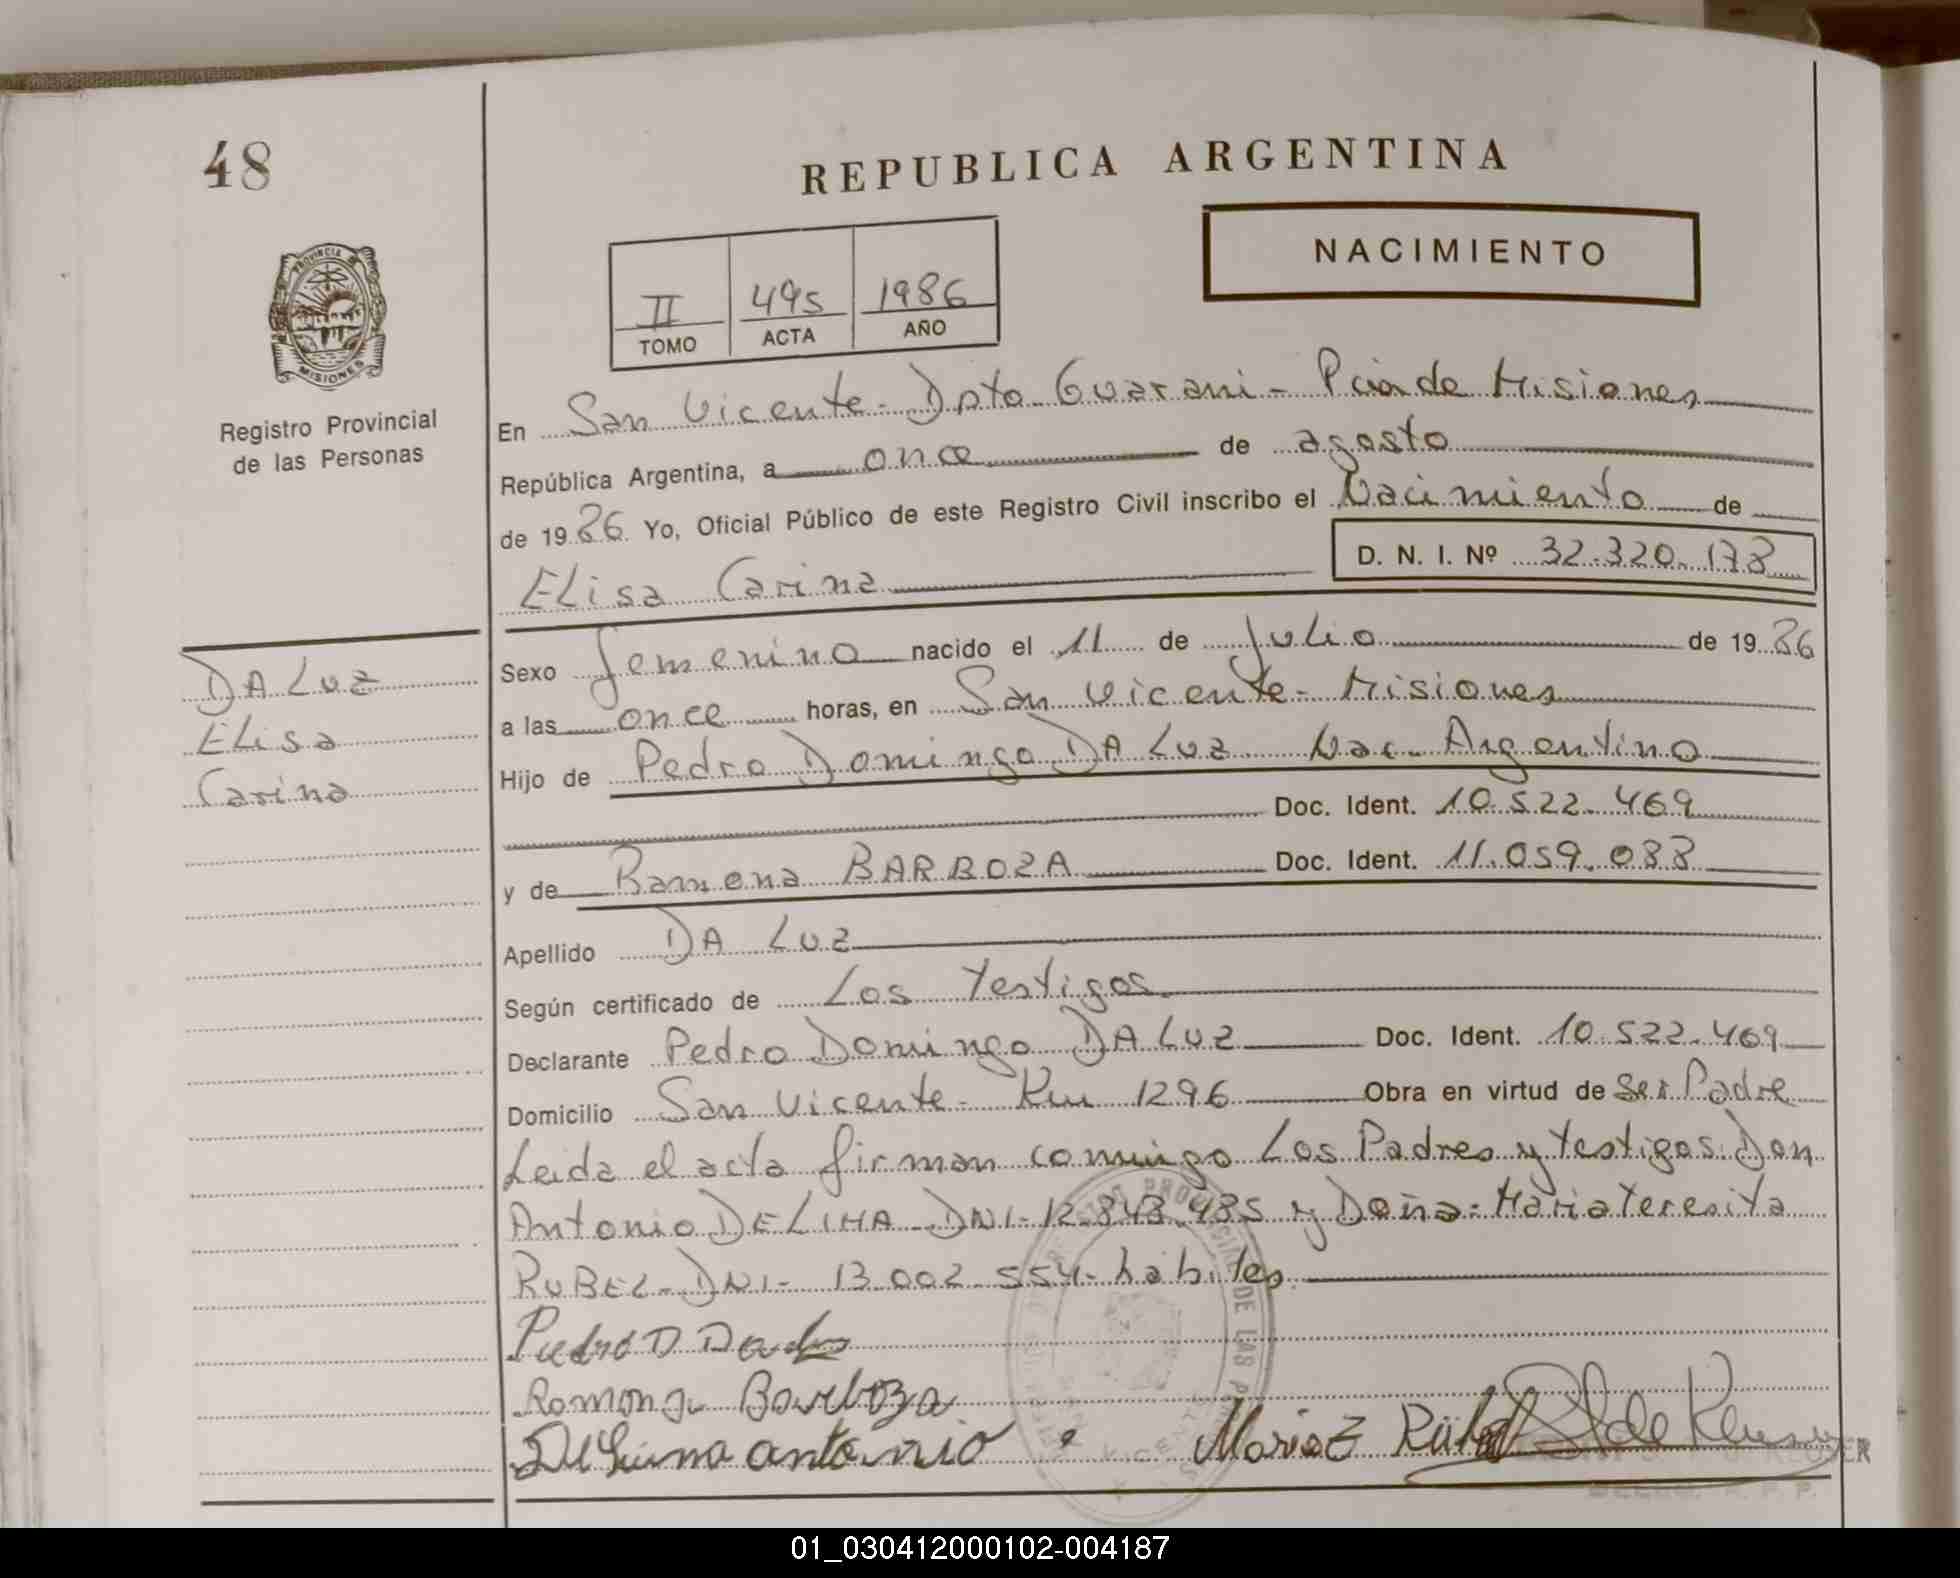 48
REPUBLICA ARGENTINA
NACIMIENTO
II 495 1986
TOMO ACTA AÑO
PROVINCIA
MISIONES
Registro Provincial
de las Personas
En San Vicente - Dpto Guarani - Pcia de Misiones
República Argentina, a once de agosto
de 1986 Yo, Oficial Público de este Registro Civil inscribo el Nacimiento de
Elisa Carina D. N. I. Nº 32.320.178
DA LUZ
Elisa
Carina
Sexo femenino nacido el 11 de Julio de 1986
a las once horas, en San Vicente - Misiones
Hijo de Pedro Domingo DA LUZ Nac. Argentino
Doc. Ident. 10.522.469
y de Ramona BARBOZA Doc. Ident. 11.059.088
Apellido DA LUZ
Según certificado de Los Testigos
Declarante Pedro Domingo DA LUZ Doc. Ident. 10.522.469
Domicilio San Vicente - Km 1296 Obra en virtud de Ser Padre
Leida el acta firman conmigo Los Padres y testigos: Don
Antonio DE LIMA - DNI - 12.843.985 y Doña: Maria Teresita
RUBEL - DNI - 13.002.554 - habiles.
Pedro D
Ramona Barboza
De Lima antonio
Maria
01_030412000102-004187